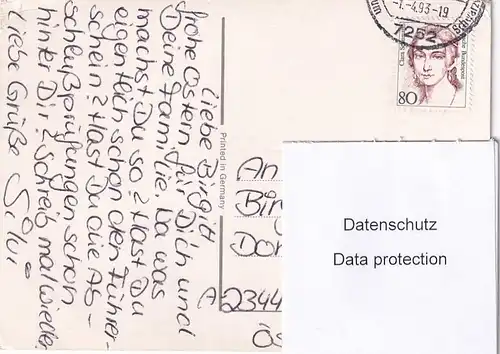 Liebe Birgitt
frohe Ostern für Dich und
Deine Familie. Da was
machst Du so? Hast Du
eigentlich schon den Führer-
schein? Hast Du die Ab-
schlußprüfungen schon
hinter Dir? Schreib mal wieder
Liebe Grüße Silvi
Printed in Germany
-1.-4.93-19
7252
Deutsche Bundespost
80
An
Birg
Dor
A 2344
Ös
Datenschutz
Data protection